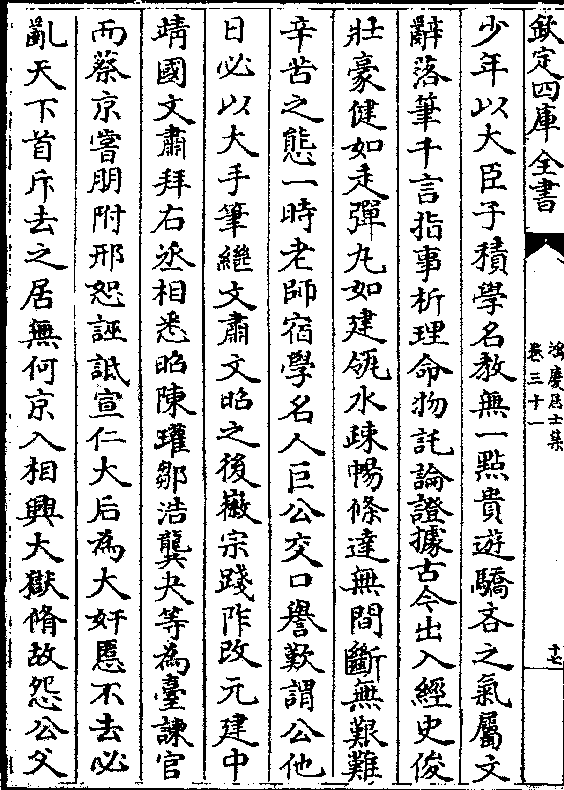 欽定四庫全書
鴻慶居士集
卷三十一
十七
少年以大臣子積學名教無一㸃貴遊驕吝之氣屬文
辭落筆千言指事析理命物託論證據古今出入經史俊
壯豪健如走彈丸如建瓴水疎暢條達無間斷無艱難
辛苦之態一時老師宿學名人巨公交口譽歎謂公他
日必以大手筆繼文肅文昭之後徽宗踐阼改元建中
靖國文肅拜右丞相悉昭陳瓘鄒浩龔夬等為臺諫官
而蔡京嘗朋附邢恕誣詆宣仁大后為大奸慝不去必
亂天下首斥去之居無何京入相興大獄脩故怨公父